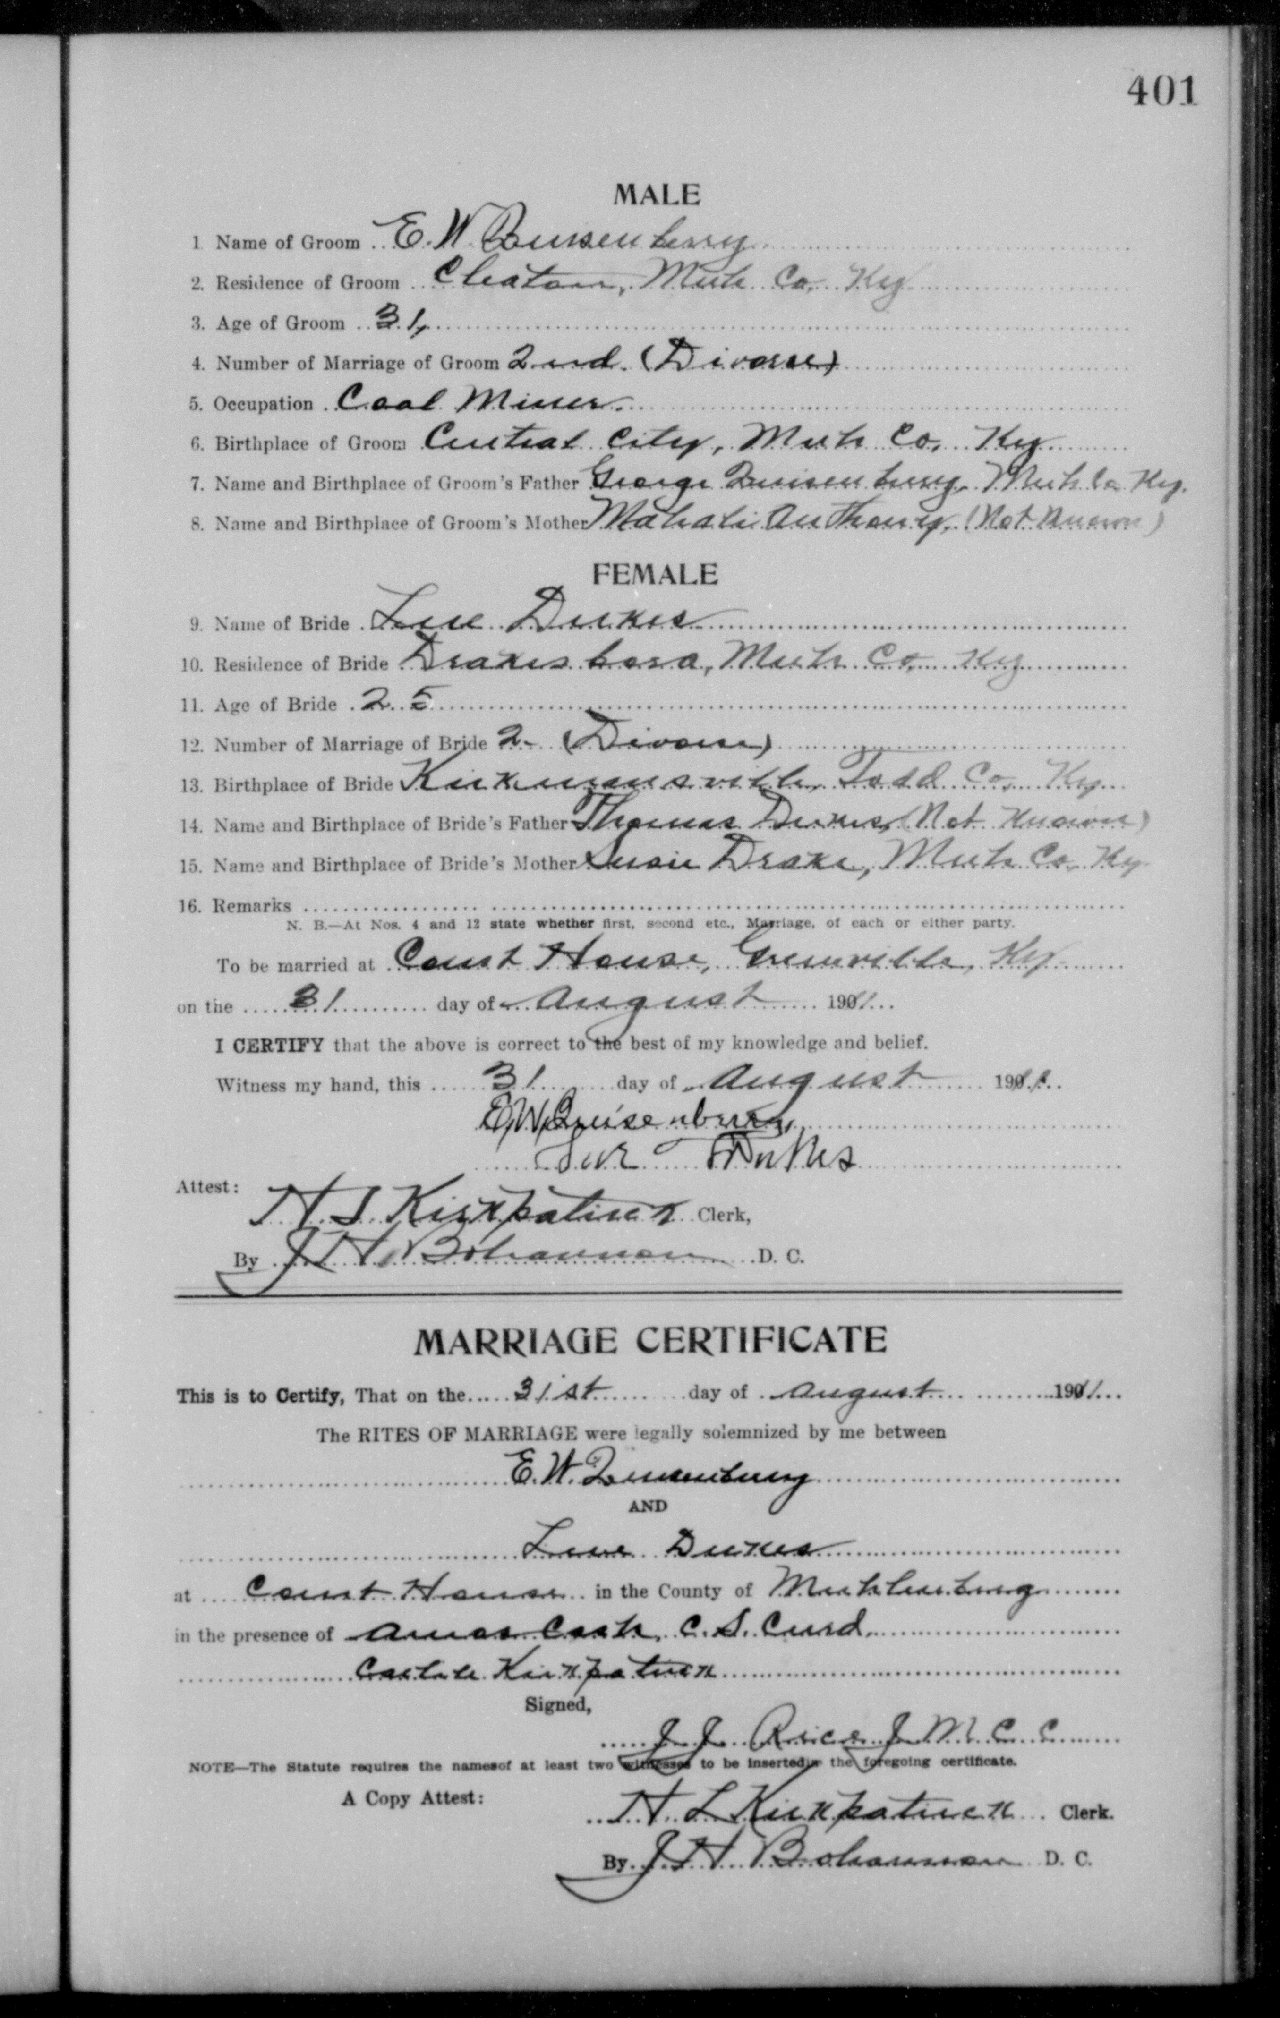 401
MALE
1 Name of Groom E. W. Quisenberry
2. Residence of Groom Cleaton, Muh Co, Ky
3. Age of Groom 31,
4. Number of Marriage of Groom 2nd. (Divorse)
5. Occupation Coal Miner.
6. Birthplace of Groom Central City, Muh Co, Ky
7. Name and Birthplace of Groom's Father George Quisenberry, Muh Co Ky.
8. Name and Birthplace of Groom's Mother Mahali Anthony, (Not Known)
FEMALE
9. Name of Bride Lue Dukes
10. Residence of Bride Drakesboro, Muh Co, Ky
11. Age of Bride 25
12. Number of Marriage of Bride 2- (Divorse)
13. Birthplace of Bride Kirkmansville, Todd Co, Ky
14. Name and Birthplace of Bride's Father Thomas Dukes, (Not Known)
15. Name and Birthplace of Bride's Mother Susie Drake, Muh Co, Ky
16. Remarks
N. B.—At Nos. 4 and 12 state whether first, second etc., Marriage, of each or either party.
To be married at Court House, Greenville, Ky
on the 31 day of August 1911
I CERTIFY that the above is correct to the best of my knowledge and belief.
Witness my hand, this 31 day of August 1911.
E, W, Quisenberry,
Lue Dukes
Attest:
H. L. Kirkpatrick Clerk,
By J H, Bohannon D. C.
MARRIAGE CERTIFICATE
This is to Certify, That on the 31st day of August 1911
The RITES OF MARRIAGE were legally solemnized by me between
E. W. Quisenberry
AND
Lue Dukes
at Court House in the County of Muhlenberg
in the presence of Amos Cash, C. S. Curd,
Carlisle Kirkpatrick
Signed,
J J Rice J M C C
NOTE—The Statute requires the namesof at least two witnesses to be insertedin the foregoing certificate.
A Copy Attest:
H L Kirkpatrick Clerk.
By J H Bohannon D. C.